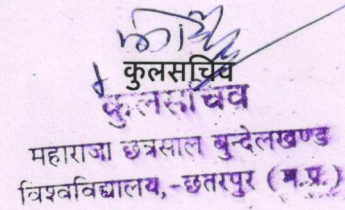 कुलसचिव
कुलसचिव
महाराजा छत्रसाल बुन्देलखण्ड
विश्वविद्यालय,-छतरपुर (म.प्र.)